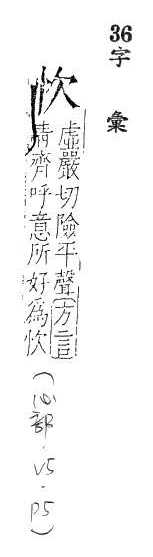 36
字彙
忺
虛嚴切險平聲〔方言〕
青齊呼意所好為忺
(心部.V5.P5)